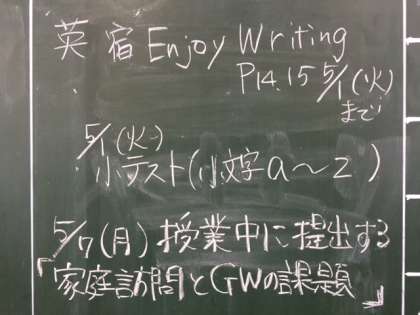 英 宿 Enjoy Writing
P14.15 5/1(火)
まで
5/1(火)
小テスト(小文字a〜z)
5/7(月) 授業中に提出する
「家庭訪問とGWの課題」